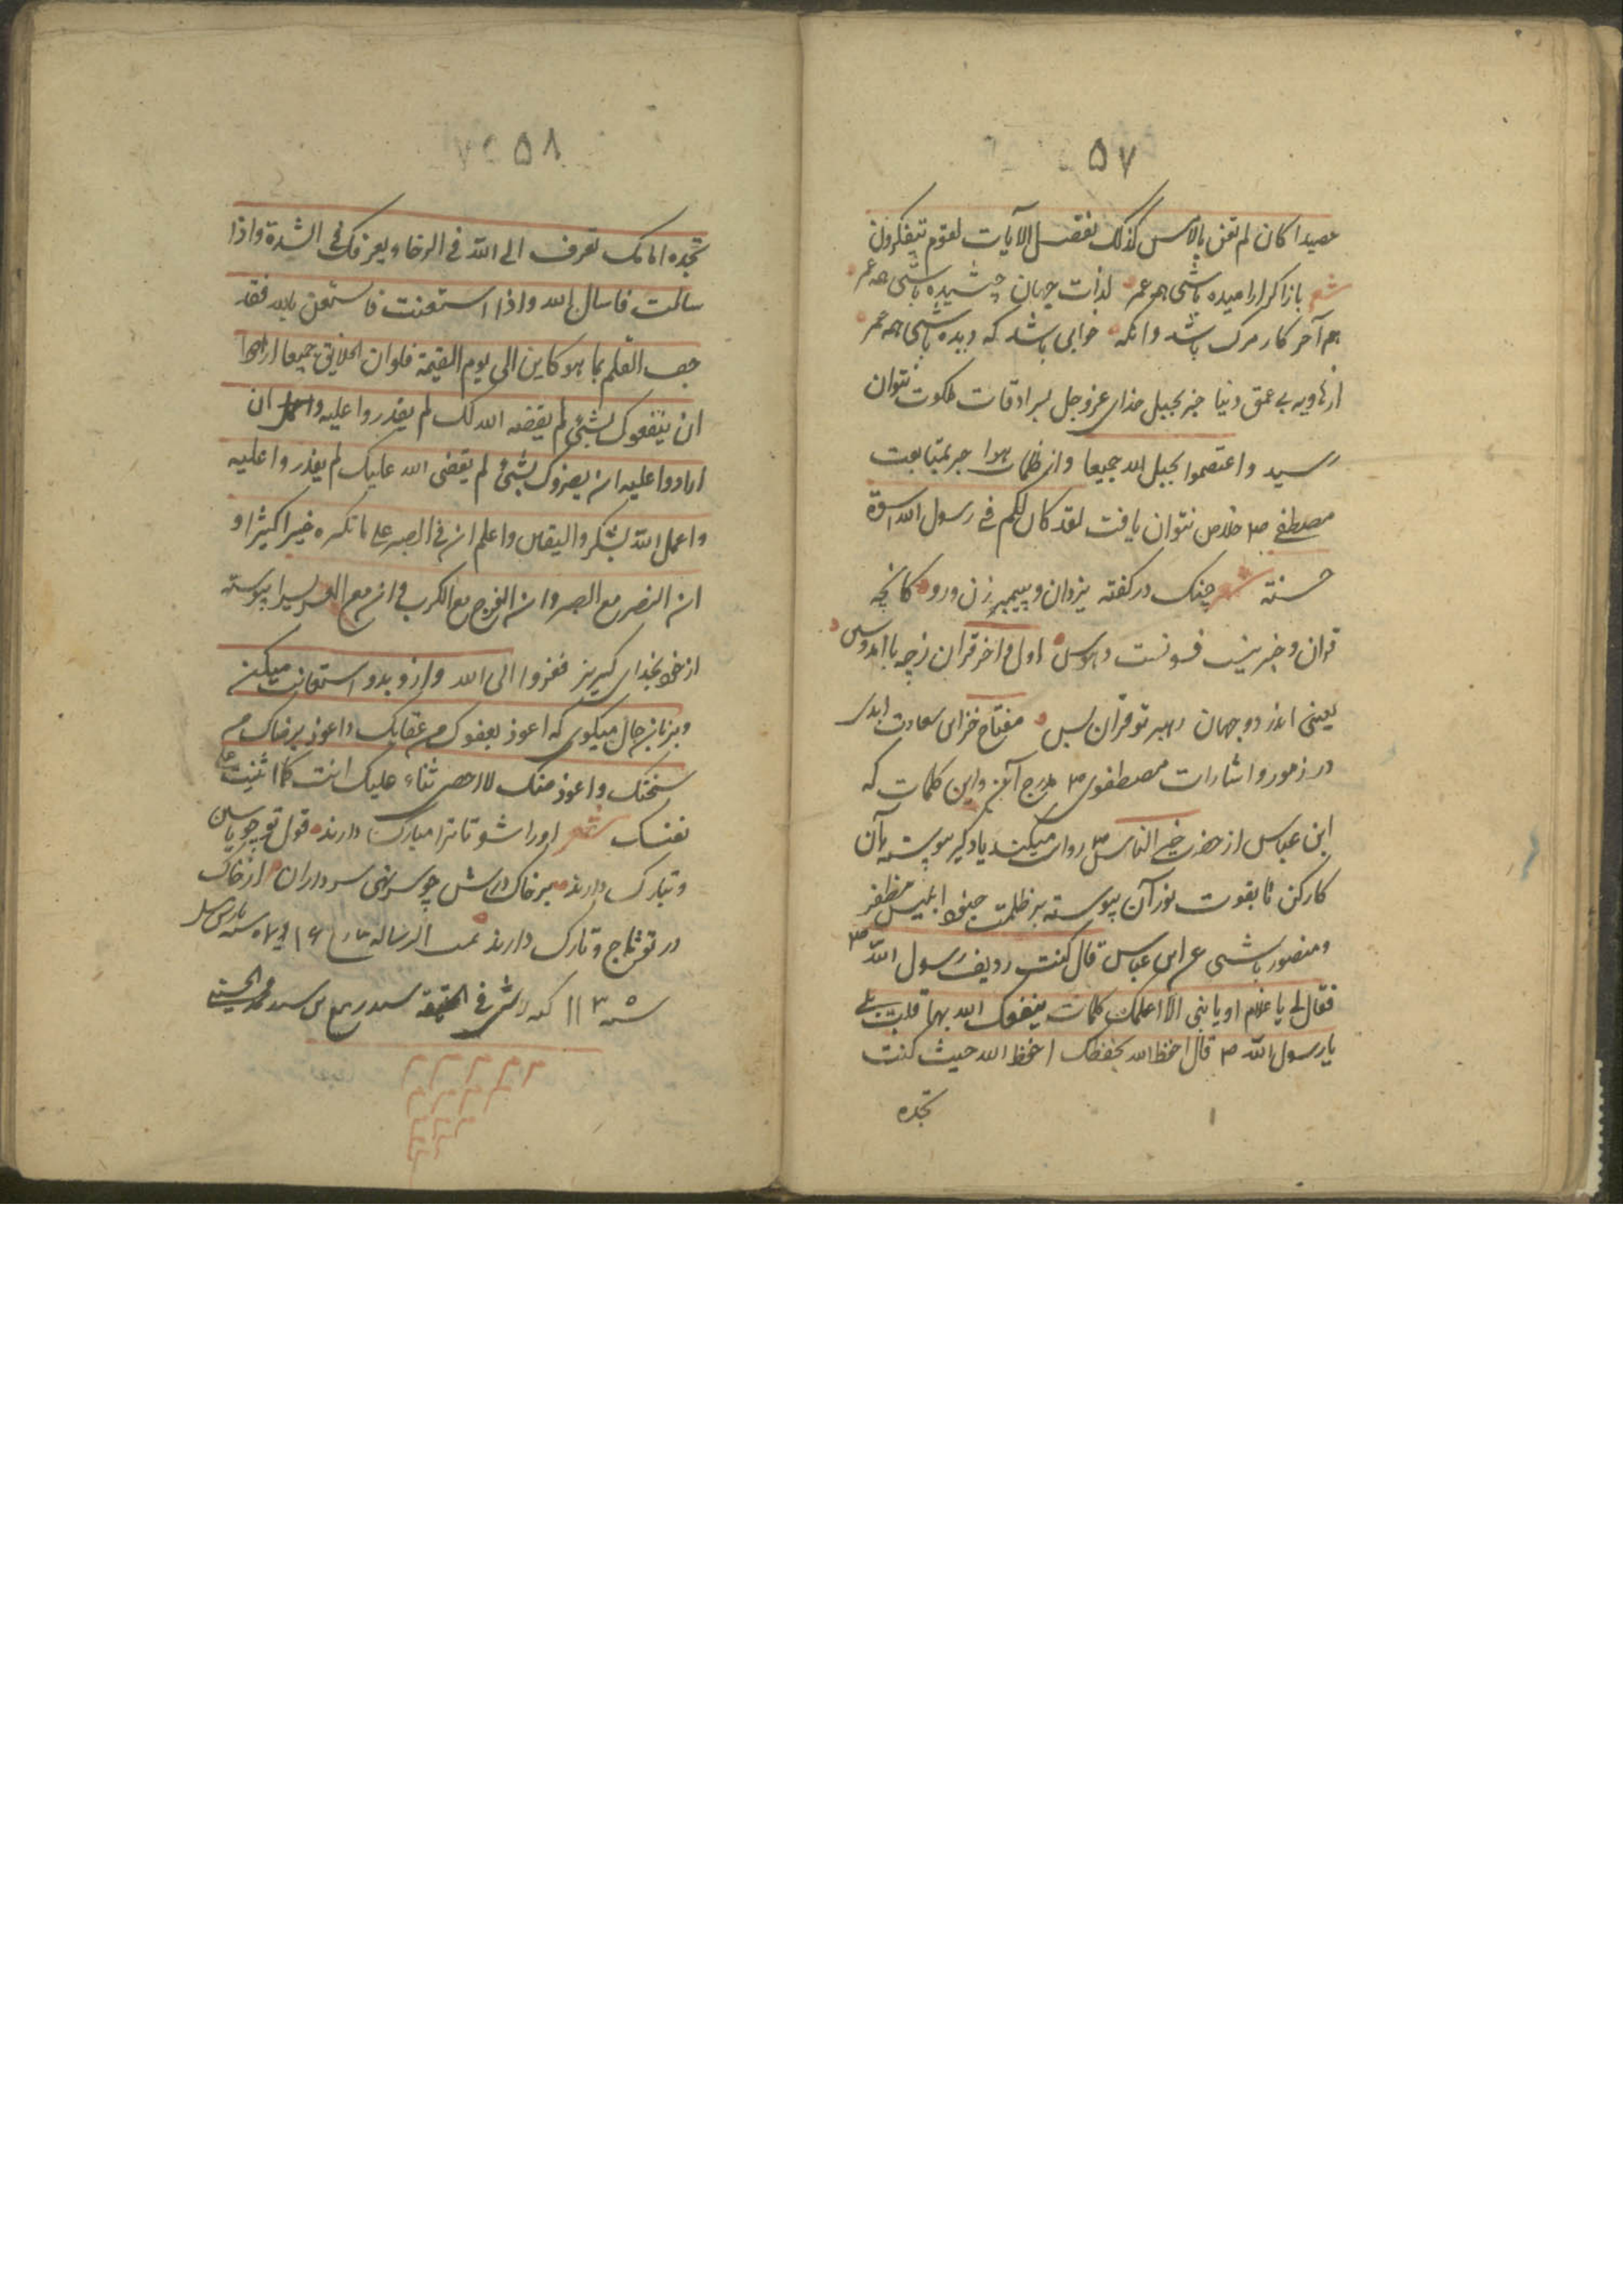 ۵۷
حصیدا کان لم تغن بالامس کذلک نفصل الآیات لقوم یتفکرون
شعر با زا کرارامیده باشی همه عمر لذات جهان چشیده باشی همه عمر
هم آخر کار مرک باشد وانکه خوابی باشد که دیده باشی همه عمر
ازهاویه بی عمق دنیا جز بحبل خدای عزوجل بسرادقات ملکوت نتوان
رسید واعتصموا بحبل الله جمیعا واز ظلمات هوا جز بمتابعت
مصطفی ص خلاص نتوان یافت لقد کان لکم فی رسول الله اسوة
حسنة شعر چنک در کفته یزدان وپیمبر زن ورو کانچه
قران وخبر نیست فسونست وهوس اول واخر قران زچه با امد وسین
یعنی اندر دو جهان رهبر تو قران بس مفتاح خزاین سعادت ابدی
در رموز واشارات مصطفوی ص درج واین کلمات که
ابن عباس از حضرت خیر الناس ص روایت میکند یادکیر پیوسته بآن
کارکن تا بقوت نور آن پیوسته بر ظلمت جنود ابلیس مظفر
ومنصور باشی عن ابن عباس قال کنت ردیف رسول الله ص
فقال لی یا غلام او یا بنی الا اعلمک کلمات ینفعک الله بها قلت بلی
یا رسول الله ص قال احفظ الله یحفظک احفظ الله حیث کنت
تجده
۵۸
تجده امامک تعرف الی الله فی الرخا ویعرفک فی الشدة واذا
سالت فاسال الله واذا استعنت فاستعن بالله فقد
جف القلم بما هو کاین الی یوم القیمة فلوان الخلایق جمیعا ارادوا
ان ینفعوک بشئ لم یقضه الله لک لم یقدروا علیه وان
ارادوا علیه ان یضروک بشئ لم یقضی الله علیک لم یقدروا علیه
واعمل لله بشکر والیقین واعلم ان فی الصبر علی ما تکره خیرا کثیرا و
ان النصر مع الصبر وان الفرج مع الکرب وان مع العسر یسرا پیوسته
از خود بخدای کریز ففروا الی الله وازو بدو استعانت میکن
وبزبان حال میکوی که اعوذ بعفوک من عقابک واعوذ برضاک من
سخطک واعوذ منک لا احصی ثناء علیک انت کما اثنیت علی
نفسک شعر اورا شو تا ترا مبارک دارند قول تو چو یاسین
وتبارک دارند بر خاک درش چو سرنهی سرداران از خاک
در تو تاج وتارک دارند تمت الرسالة
سید ربیع بن سید محمد الحسینی